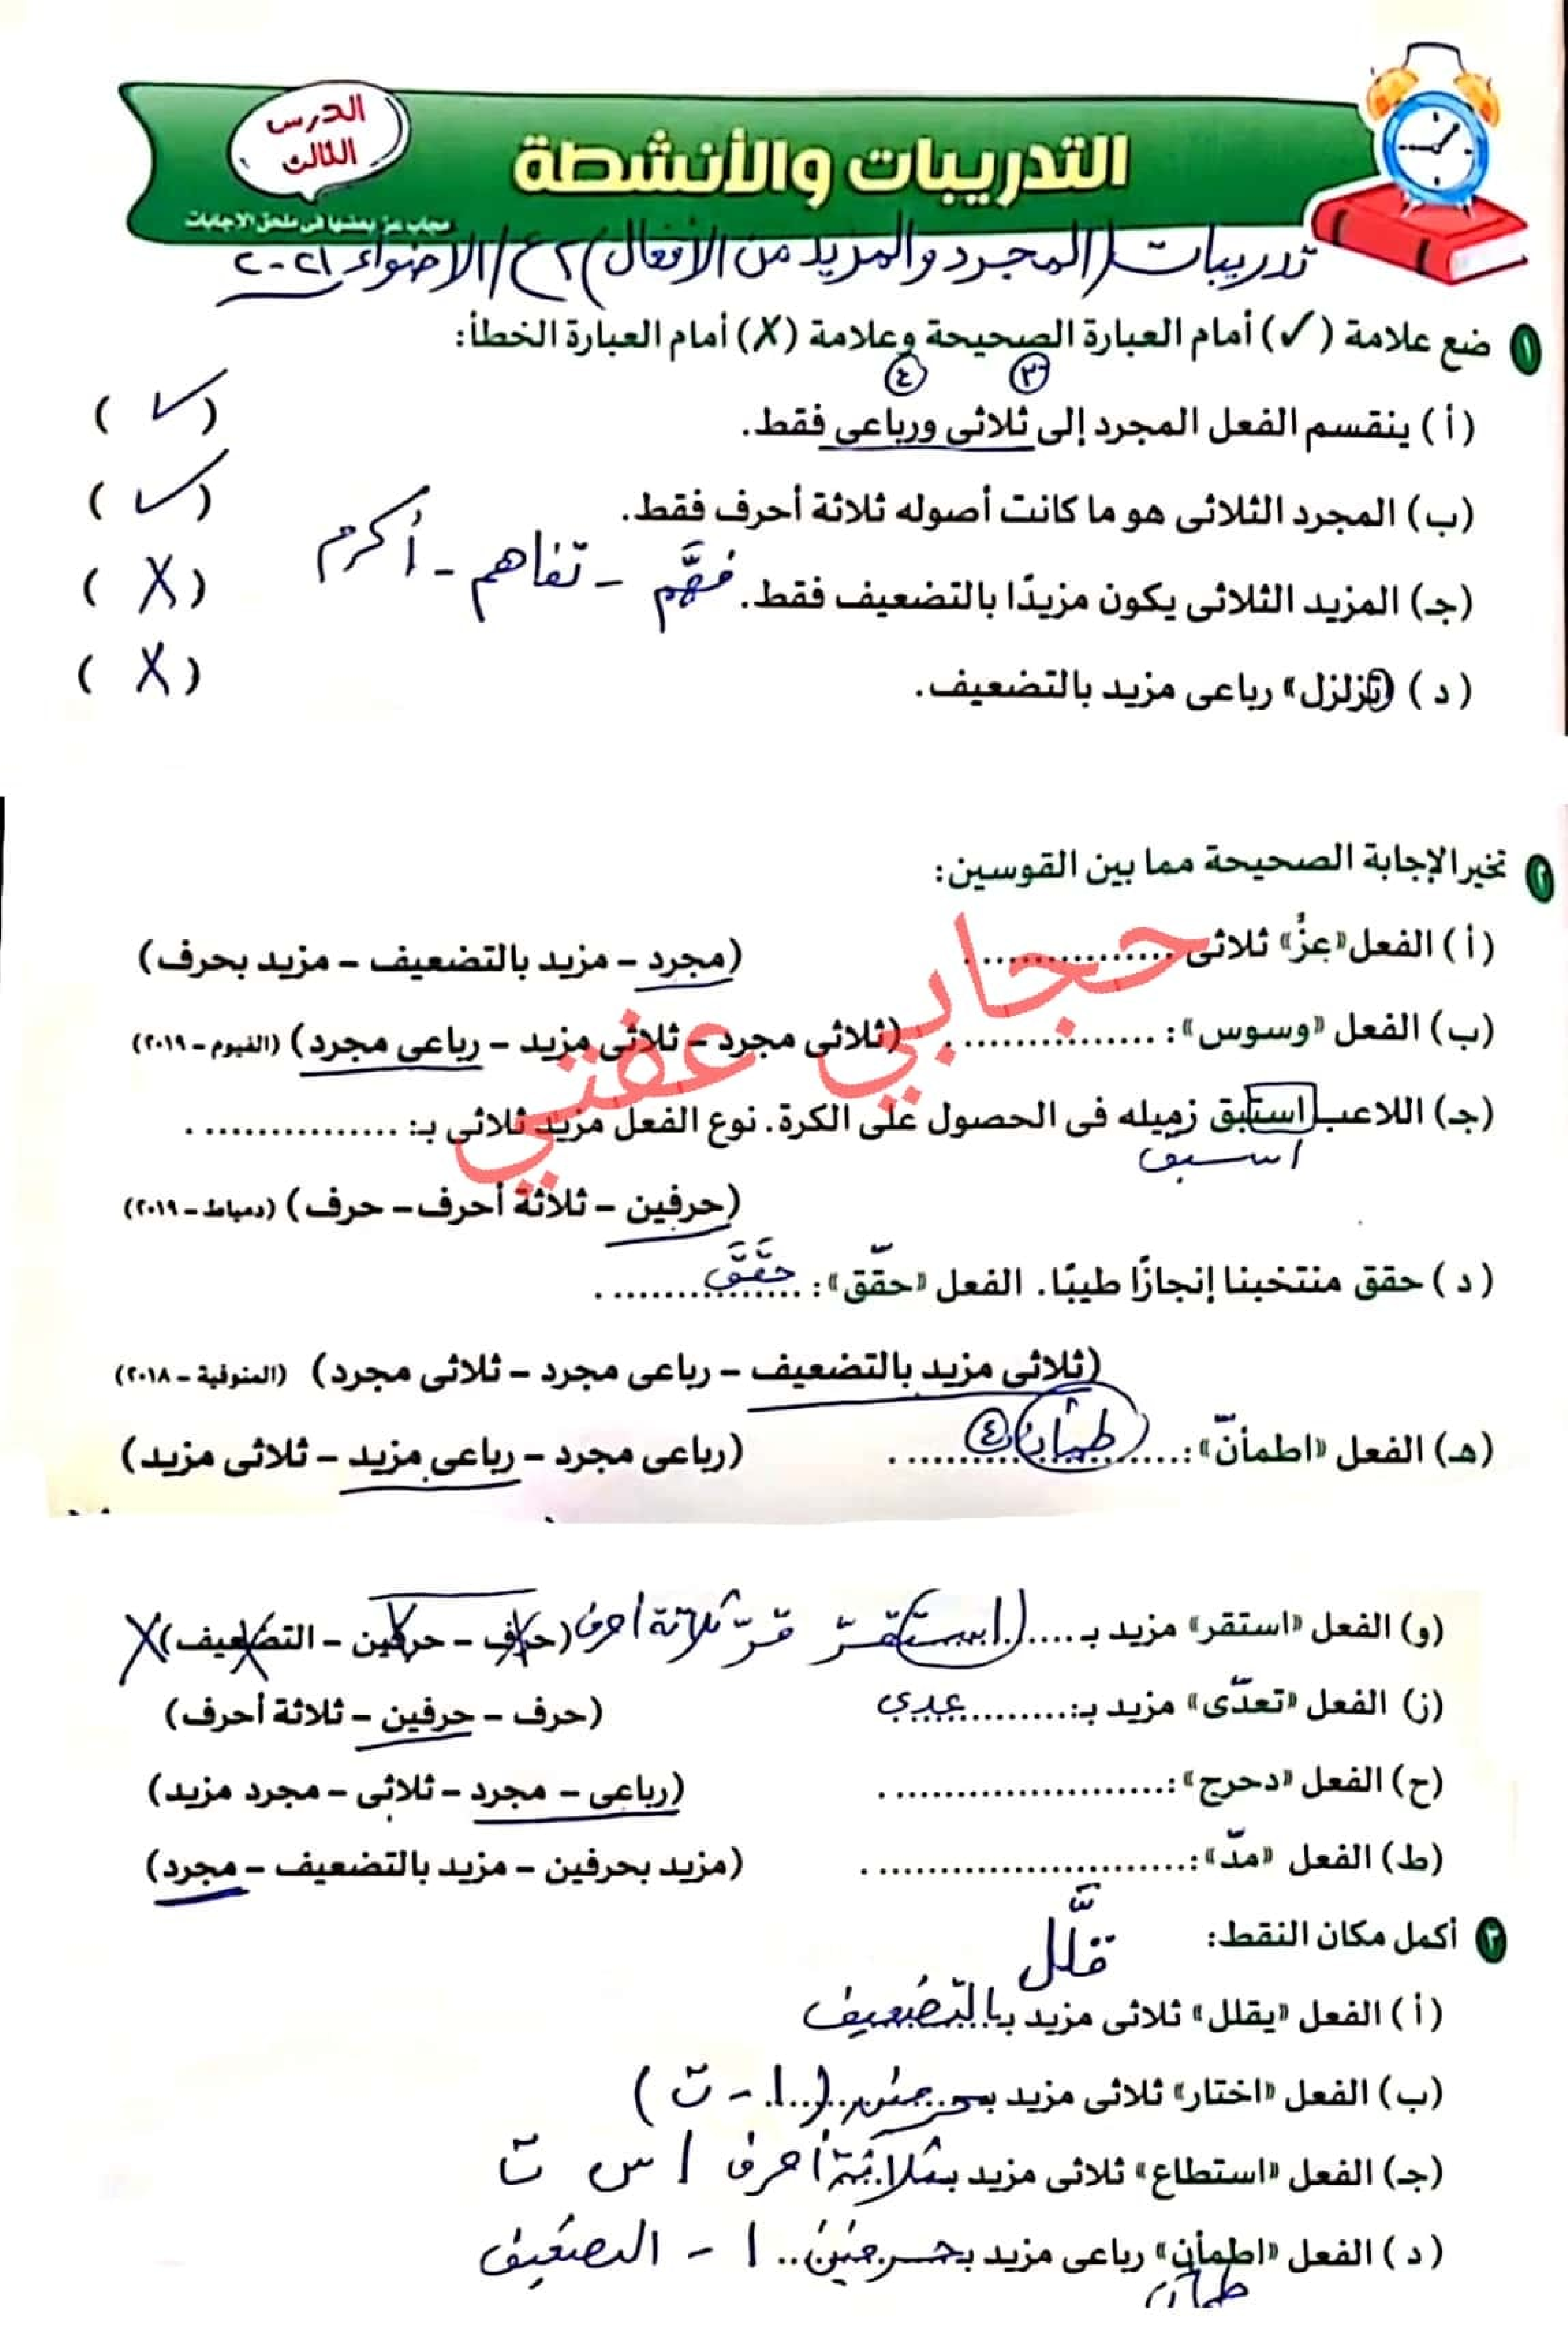 الدرس
الثالث
التدريبات والأنشطة
مجاب عن بعضها فى ملحق الإجابات
تدريبات (المجرد والمزيد من الأفعال) ٢ع/الاضواء ٢٠٢١
١ ضع علامة (✓) أمام العبارة الصحيحة وعلامة (✗) أمام العبارة الخطأ:
٣ ٤
(أ) ينقسم الفعل المجرد إلى ثلاثى ورباعى فقط. (✓)
(ب) المجرد الثلاثى هو ما كانت أصوله ثلاثة أحرف فقط. (✓)
(جـ) المزيد الثلاثى يكون مزيدًا بالتضعيف فقط. فهَّم - تفاهم - أكرم (X)
(د) «تزلزل» رباعى مزيد بالتضعيف. (X)
٢ تخير الإجابة الصحيحة مما بين القوسين:
(أ) الفعل «عزَّ» ثلاثى ................ (مجرد - مزيد بالتضعيف - مزيد بحرف)
(ب) الفعل «وسوس»: ................ (ثلاثى مجرد - ثلاثى مزيد - رباعى مجرد) (الفيوم - ٢٠١٩)
(جـ) اللاعب استبق زميله فى الحصول على الكرة. نوع الفعل مزيد ثلاثى بـ: ................
(حرفين - ثلاثة أحرف - حرف) (دمياط - ٢٠١٩)
(د) حقق منتخبنا إنجازًا طيبًا. الفعل «حقّق»: حقَّقَ
(ثلاثى مزيد بالتضعيف - رباعى مجرد - ثلاثى مجرد) (المنوفية - ٢٠١٨)
(هـ) الفعل «اطمأنّ»: طمأن ٤ (رباعى مجرد - رباعى مزيد - ثلاثى مزيد)
حجابي عفتي
(و) الفعل «استقر» مزيد بـ ..... استقرّ قرّ ثلاثة أحرف (حرف - حرفين - التضعيف) X
(ز) الفعل «تعدّى» مزيد بـ: عدى (حرف - حرفين - ثلاثة أحرف)
(ح) الفعل «دحرج»: ........................ (رباعى - مجرد - ثلاثى - مجرد مزيد)
(ط) الفعل «مدّ»: ........................ (مزيد بحرفين - مزيد بالتضعيف - مجرد)
٣ أكمل مكان النقط:
قلَّل
(أ) الفعل «يقلل» ثلاثى مزيد بالتضعيف
(ب) الفعل «اختار» ثلاثى مزيد بحرفين (ا - ت)
(جـ) الفعل «استطاع» ثلاثى مزيد بثلاثة أحرف ا س ت
(د) الفعل «اطمأن» رباعى مزيد بحرفين .. ا - التضعيف
طمأن